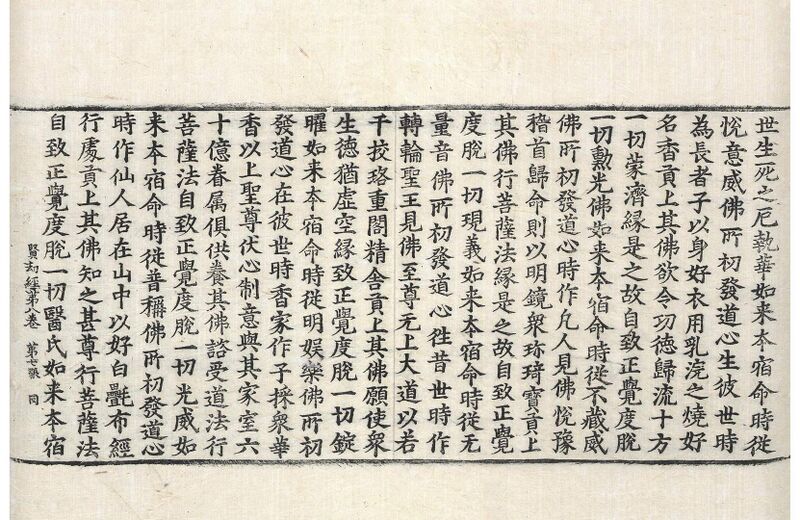 世生死之厄執華如来本宿命時從
悅意威佛所初發道心生彼世時
為長者子以身好衣用乳浣之燒好
名香貢上其佛欲令功德歸流十方
一切蒙濟緣是之故自致正覺度脫
一切勳光佛如来本宿命時從不藏威
佛所初發道心時作凡人見佛悅豫
稽首歸命則以明鏡衆珎琦寶貢上
其佛行菩薩法緣是之故自致正覺
度脫一切現義如来本宿命時從无
量音佛所初發道心徃昔世時作
轉輪聖王見佛至尊无上大道以若
干挍珞重閣精舍貢上其佛願使衆
生徳猶虛空緣致正覺度脫一切錠
曜如来本宿命時從明娛樂佛所初
發道心在彼世時香家作子採衆華
香以上聖尊伏心制意與其家室六
十億眷属俱供養其佛諮受道法行
菩薩法自致正覺度脫一切光威如
来本宿命時從普稱佛所初發道心
時作仙人居在山中以好白㲲布經
行處貢上其佛知之甚尊行菩薩法
自致正覺度脫一切醫氏如来本宿
賢劫經第八卷 第七張 同